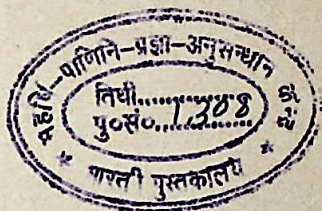 महर्षि-पाणिनि-प्रज्ञा-अनुसन्धान केन्द्र
तिथी..............
पु०सं०..1308......
* भारती पुस्तकालय *